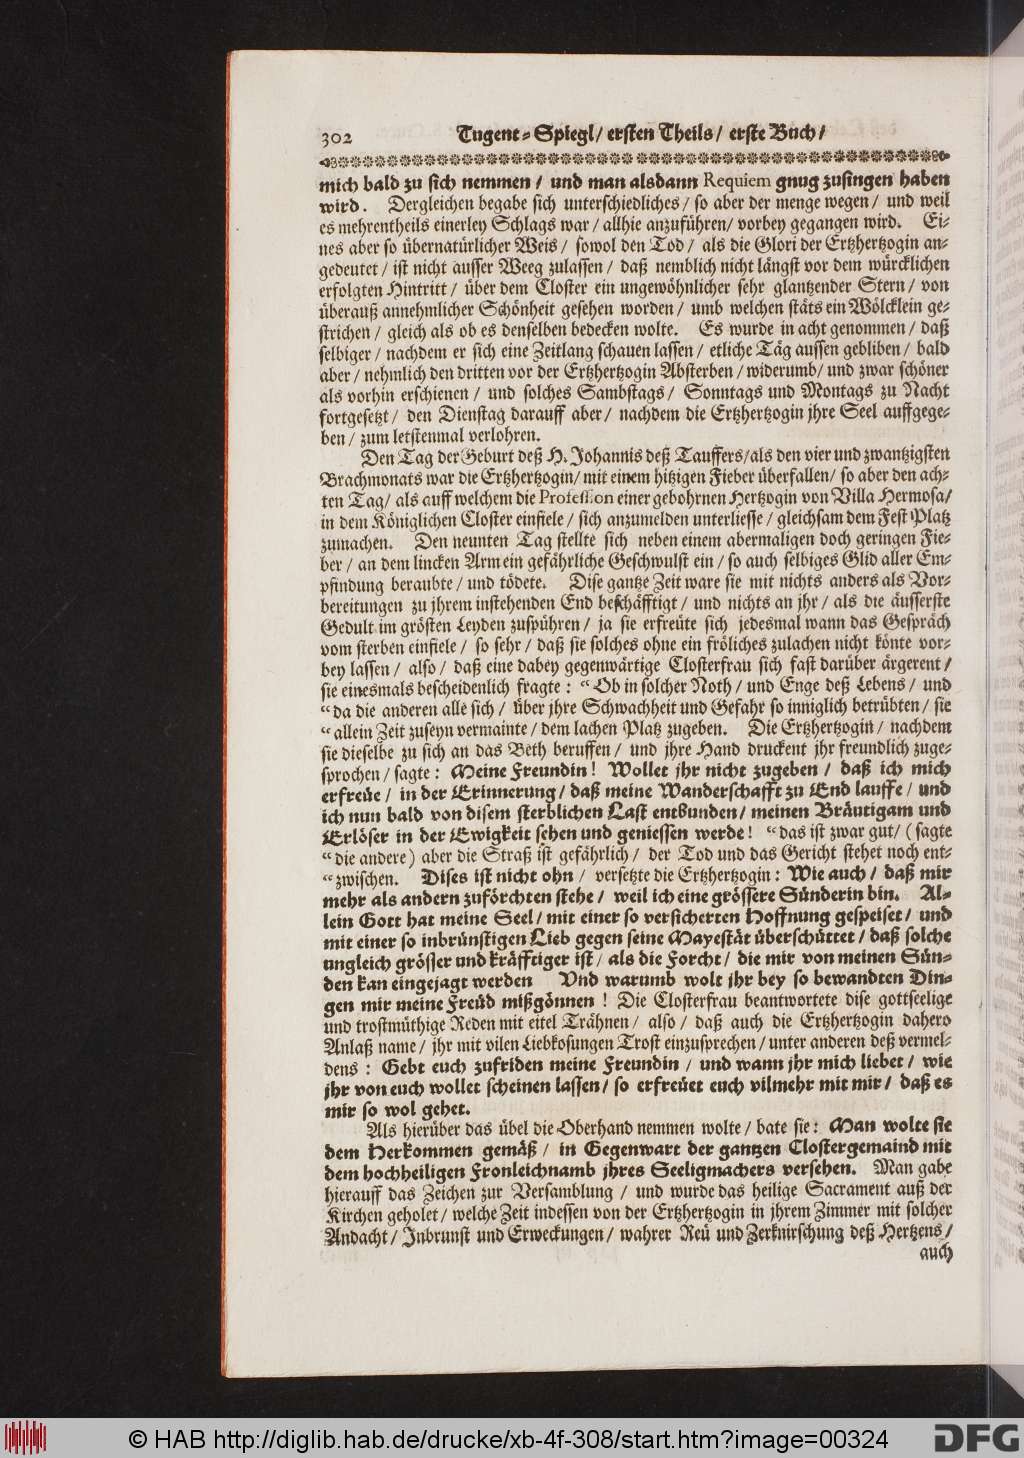 302 Tugent-Spiegl/ ersten Theils/ erste Buch/
mich bald zu sich nemmen / und man alsdann Requiem gnug zusingen haben
wird. Dergleichen begabe sich unterschiedliches / so aber der menge wegen / und weil
es mehrentheils einerley Schlags war / allhie anzuführen/ vorbey gegangen wird. Ei-
nes aber so übernatürlicher Weis / sowol den Tod / als die Glori der Ertzhertzogin an-
gedeutet / ist nicht ausser Weeg zulassen / daß nemblich nicht längst vor dem würcklichen
erfolgten Hintritt / über dem Closter ein ungewöhnlicher sehr glantzender Stern / von
überauß annehmlicher Schönheit gesehen worden / umb welchen stäts ein Wölcklein ge-
strichen / gleich als ob es denselben bedecken wolte. Es wurde in acht genommen / daß
selbiger / nachdem er sich eine Zeitlang schauen lassen / etliche Täg aussen gebliben / bald
aber / nehmlich den dritten vor der Ertzhertzogin Absterben / widerumb/ und zwar schöner
als vorhin erschienen / und solches Sambstags / Sonntags und Montags zu Nacht
fortgesetzt / den Dienstag darauff aber / nachdem die Ertzhertzogin jhre Seel auffgege-
ben / zum letstenmal verlohren.
Den Tag der Geburt deß H. Johannis deß Tauffers/als den vier und zwantzigsten
Brachmonats war die Ertzhertzogin/ mit einem hitzigen Fieber überfallen/ so aber den ach-
ten Tag/ als auff welchem die Profession einer gebohrnen Hertzogin von Villa Hermosa/
in dem Königlichen Closter einfiele / sich anzumelden unterliesse / gleichsam dem Fest Platz
zumachen. Den neunten Tag stellte sich neben einem abermaligen doch geringen Fie-
ber / an dem lincken Arm ein gefährliche Geschwulst ein / so auch selbiges Glid aller Em-
pfindung beraubte / und tödete. Dise gantze Zeit ware sie mit nichts anders als Vor-
bereitungen zu jhrem instehenden End beschäfftigt / und nichts an jhr / als die äusserste
Gedult im grösten Leyden zuspühren / ja sie erfreüte sich jedesmal wann das Gespräch
vom sterben einfiele / so sehr / daß sie solches ohne ein fröliches zulachen nicht könte vor-
bey lassen / also / daß eine dabey gegenwärtige Closterfrau sich fast darüber ärgerent /
sie einesmals bescheidenlich fragte : “Ob in solcher Noth / und Enge deß Lebens / und
“da die anderen alle sich / über jhre Schwachheit und Gefahr so inniglich betrübten / sie
“allein Zeit zuseyn vermainte / dem lachen Platz zugeben. Die Ertzhertzogin / nachdem
sie dieselbe zu sich an das Beth beruffen / und jhre Hand druckent jhr freundlich zuge-
sprochen / sagte : Meine Freundin ! Wollet jhr nicht zugeben / daß ich mich
erfreüe / in der Erinnerung / daß meine Wanderschafft zu End lauffe / und
ich nun bald von disem sterblichen Last entbunden / meinen Bräutigam und
Erlöser in der Ewigkeit sehen und geniessen werde ! “das ist zwar gut/ ( sagte
“die andere ) aber die Straß ist gefährlich / der Tod und das Gericht stehet noch ent-
“zwischen. Dises ist nicht ohn / versetzte die Ertzhertzogin : Wie auch / daß mir
mehr als andern zuförchten stehe / weil ich eine grössere Sünderin bin. Al-
lein Gott hat meine Seel / mit einer so versicherten Hoffnung gespeiset / und
mit einer so inbrünstigen Lieb gegen seine Mayestät überschüttet / daß solche
ungleich grösser und kräfftiger ist / als die Forcht / die mir von meinen Sün-
den kan eingejagt werden Und warumb wolt jhr bey so bewandten Din-
gen mir meine Freüd mißgönnen ! Die Closterfrau beantwortete dise gottseelige
und trostmüthige Reden mit eitel Trähnen / also / daß auch die Ertzhertzogin dahero
Anlaß name / jhr mit vilen Liebkosungen Trost einzusprechen / unter anderen deß vermel-
dens : Gebt euch zufriden meine Freundin / und wann jhr mich liebet / wie
jhr von euch wollet scheinen lassen / so erfreüet euch vilmehr mit mir / daß es
mir so wol gehet.
Als hierüber das übel die Oberhand nemmen wolte / bate sie : Man wolte sie
dem Herkommen gemäß / in Gegenwart der gantzen Clostergemaind mit
dem hochheiligen Fronleichnamb jhres Seeligmachers versehen. Man gabe
hierauff das Zeichen zur Versamblung / und wurde das heilige Sacrament auß der
Kirchen geholet / welche Zeit indessen von der Ertzhertzogin in jhrem Zimmer mit solcher
Andacht / Inbrunst und Erweckungen / wahrer Reü und Zerknirschung deß Hertzens /
auch
© HAB http://diglib.hab.de/drucke/xb-4f-308/start.htm?image=00324
DFG